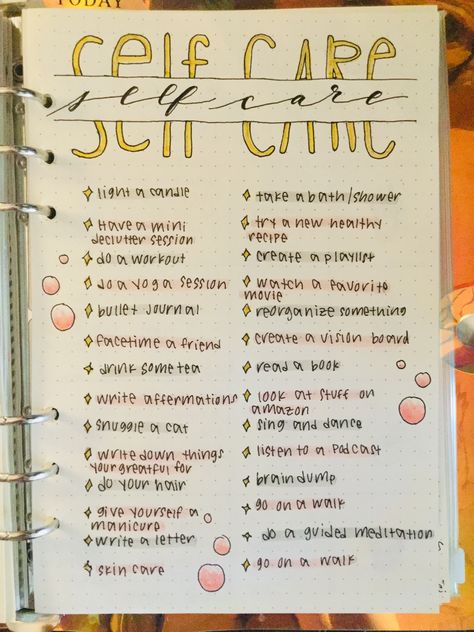 TODAY
Self CARE
self care
light a candle
Have a mini
declutter session
do a workout
do a yoga session
bullet journal
facetime a friend
drink some tea
write affermations
snuggle a cat
write down things
your greatful for
do your hair
give yourself a
manicure
write a letter
skin care
take a bath/shower
try a new healthy
recipe
create a playlist
watch a favorite
movie
reorganize something
create a vision board
read a book
look at stuff on
amazon
sing and dance
listen to a podcast
brain dump
go on a walk
do a guided meditation
go on a walk